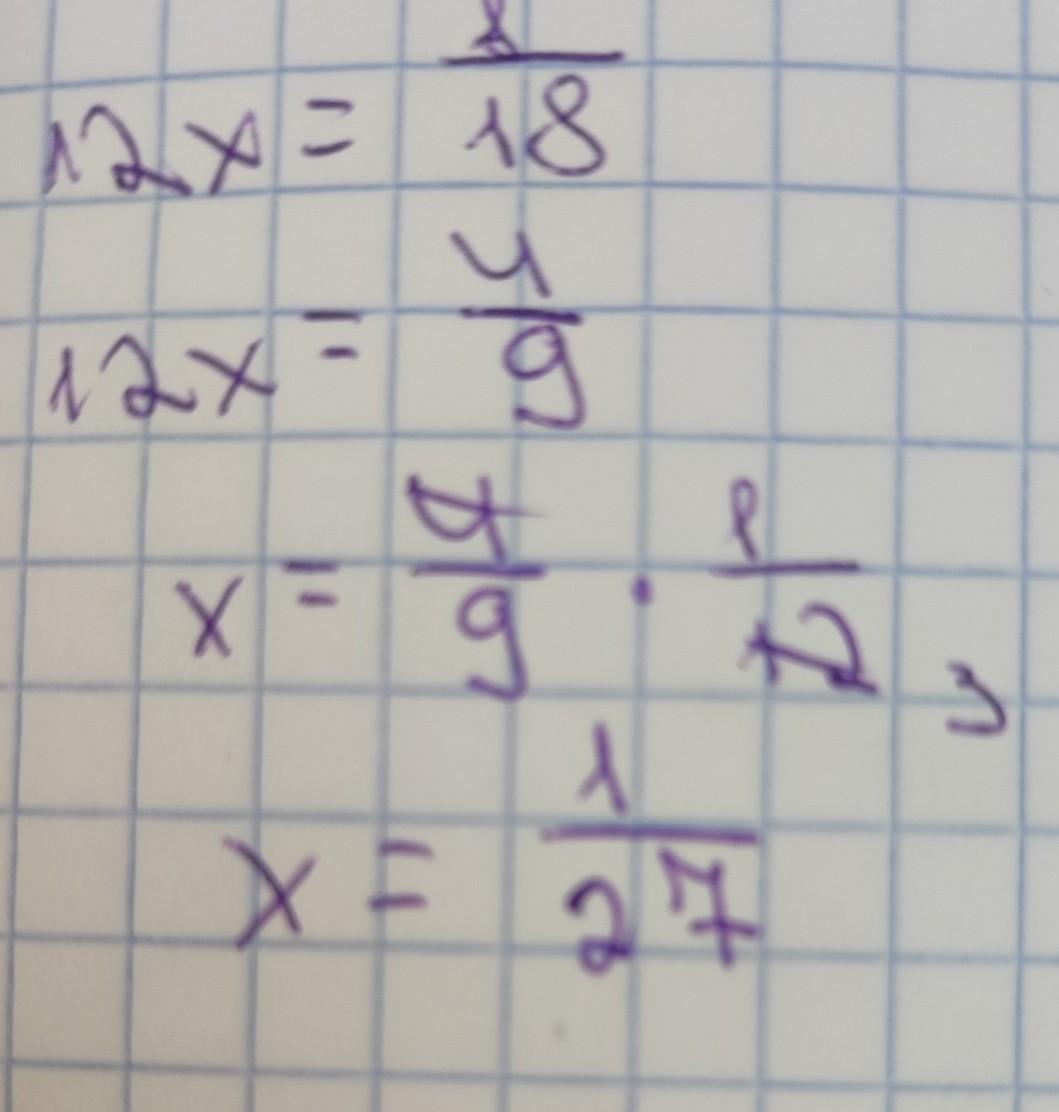 12x = 8/18
12x = 4/9
x = 4/9 · 1/12 3
x = 1/27